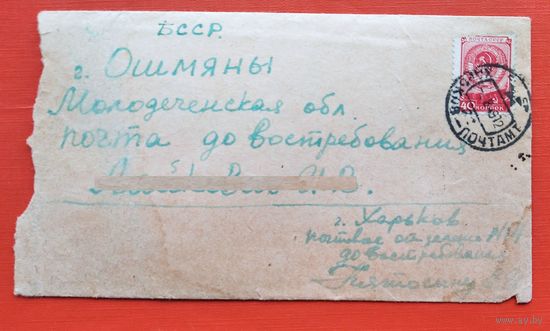 БССР.
г. Ошмяны
Молодеченская обл.
почта до востребования
г. Харьков
почтовое отделение
до востребования
ПОЧТА СССР
40 КОПЕЕК
ПОЧТАМТ
www.ay.by